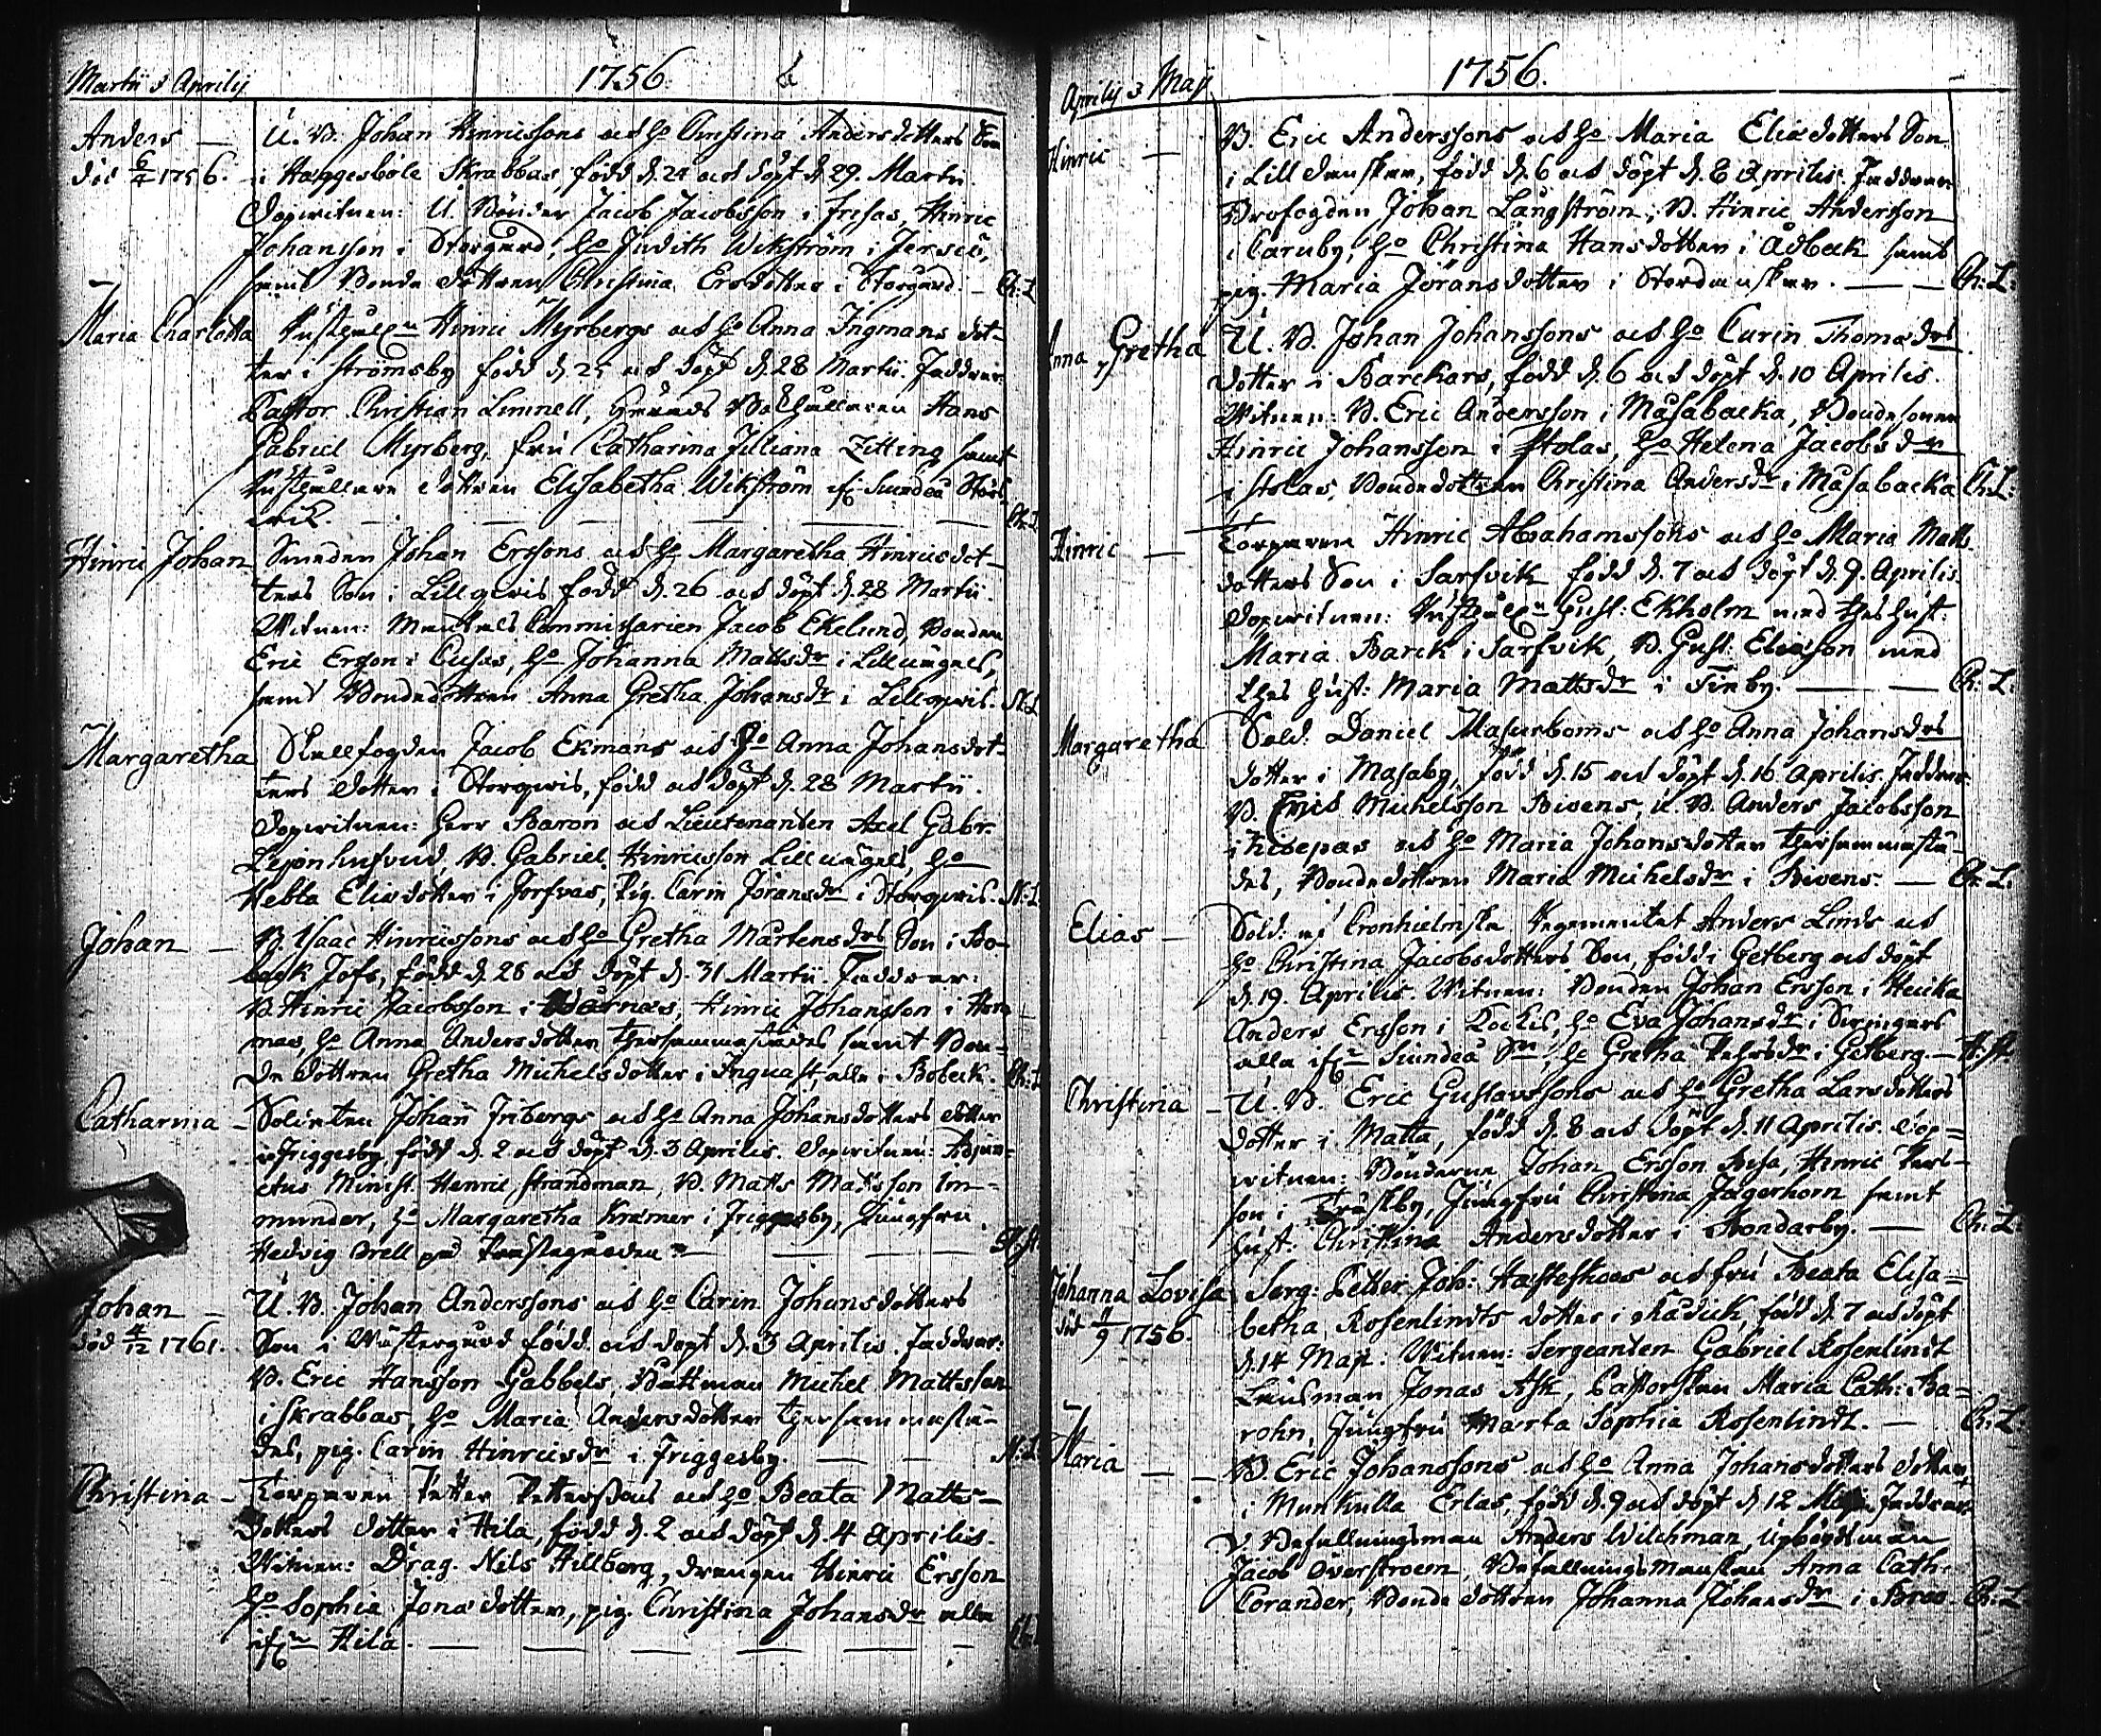 Martii & Aprilis
1756.
Anders —
död 6/4 1756.
U. B. Johan Hinricssons och h:o Christina Andersdotters Son
i Haggesböle Skrabbas, född d. 24 och döpt d. 29. Martii.
Dopwitnen: U. Bönder Jacob Jacobsson i Fresas, Hinric
Johansson i Storgård, h:o Judith Wikström i
samt Bonde dottren Christina Ersdotter i Storgård. — Ch: L
Maria Charlotta
Hinric Myrbergs och h:o Anna Ingmans dot-
ter i Strömsby född d. 25 och döpt d. 28 Martii. Faddrar:
Pastor Christian Limnell, Bokhållaren Hans
Gabriel Myrberg, fru Catharina Juliana Zitting samt
dottren Elisabetha Wikström if:n Siundeå
Ch: L
Hinric Johan
Smeden Johan Erssons och h:o Margaretha Hinricsdot-
ters Son i Lillqwis född d. 26 och döpt d. 28 Martii.
Witnen: Commissarien Jacob Ekelund, Bonden
Eric Ersson i Cusas, h:o Johanna Mattsd:r i Lillnägels,
samt Bondedottren Anna Gretha Johansd:r i Lillqwis. N: L
Margaretha
Stallfogden Jacob Ekmans och h:o Anna Johansdot-
ters dotter i Storqwis, född och döpt d. 28 Martii.
Dopwitnen: Herr Baron och Lieutenanten Axel Gabr.
Lejonhufvud, B. Gabriel Hinricsson Lillnägels, h:o
Hebla Eliæ dotter i Jorfvas, Pig. Carin Jöransd:r i Storqwis. N: L
Johan —
B. Isaac Hinricssons och h:o Gretha Mårtensd:rs Son i Bo-
beck Jofs, född d. 28 och döpt d. 31 Martii. Faddrar:
B. Hinric Jacobsson i Hinric Johansson i
h:o Anna Andersdotter thersammastädes samt Bon-
de dottren Gretha Michelsdotter i Ingvast, alla i Bobeck. Ch: L
Catharina —
Soldaten Johan Fribergs och h:o Anna Johansdotters dotter
i Friggesby född d. 2 och döpt d. 3 Aprilis. Dopwitnen: Adjun-
ctus Minist. Henric Strandman, B. Matts Mattsson Im-
munder, h:o Margaretha Kræmer i Friggesby, Jungfru
Hedvig Brell på Prestegården — — — H: St
Johan —
död 4/12 1761.
U. B. Johan Anderssons och h:o Carin Johansdotters
Son i Wästergård född och döpt d. 3 Aprilis. Faddrar:
B. Eric Hansson Gabbels, Båtsman Michel Mattsson
i Skrabbas, h:o Maria Andersdotter thersammastä-
des, pig. Carin Hinricsd:r i Friggesby. — — N: L
Christina —
Torparen Petter Petterssons och h:o Beata Matts-
dotters dotter i Hila, född d. 2 och döpt d. 4 Aprilis.
Witnen: Drag. Nils Hillberg, drengen Hinric Ersson
h:o Sophia Jonædotter, pig. Christina Johansd:r alla
if:n Hila. — — — — — Ch: L
Aprilis & Maji
1756.
Hinric —
B. Eric Anderssons och h:o Maria Eliædotters Son
i Lill Densker, född d. 6 och döpt d. 8 Aprilis. Faddrar:
Brofogden Johan Långström, B. Hinric Andersson
i Caruby, h:o Christina Hansdotter i Ådbeck samt
pig. Maria Jöransdotter i Stordensker. — — Ch: L:
Anna Gretha
U. B. Johan Johanssons och h:o Carin Thomæd:rs
dotter i Barckars, född d. 6 och döpt d. 10 Aprilis.
Witnen: B. Eric Andersson i Måsabacka, Bondesonen
Hinric Johansson i Stolas, h:o Helena Jacobsd:r
i Stolas, Bondedottren Christina Andersd:r i Måsabacka Ch: L:
Hinric —
Torparen Hinric Abrahamssons och h:o Maria Matts-
dotters Son i Sarfvik född d. 7 och döpt d. 9. Aprilis.
Dopwitnen: Gust: Ekholm med thes hust:
Maria Barck i Sarfvik, B. Gust: Eliæson med
thes hust: Maria Mattsd:r i Finby. — — Ch: L:
Margaretha
Sold. Daniel Masurboms och h:o Anna Johansd:rs
dotter i Masaby, född d. 15 och döpt d. 16 Aprilis. Faddrar:
B. Erics Michelsson Bisens, U. B. Anders Jacobsson
i och h:o Maria Johansdotter thersammastä-
des, Bondedottren Maria Michelsd:r i Bisens. — Ch: L:
Elias —
Sold: af Cronhielmska Regementet Anders Linds och
h:o Christina Jacobsdotters Son, född i Getberg och döpt
d. 19 Aprilis. Witnen: Bonden Johan Ersson i Heicka
Anders Ersson i Kockis, h:o Eva Johansd:r i Swingars
alla if:n Siundeå S:n, h:o Gretha Pehrsd:r i Getberg. — H: St
Christina —
U. B. Eric Gustavssons och h:o Gretha Larsdotters
dotter i Matta, född d. 8 och döpt d. 11 Aprilis. Dop-
witnen: Bönderne Johan Ersson Bisa, Hinric Pers-
son i Träskby, Jungfru Christina Jägerhorn samt
hust. Christina Andersdotter i Bondarby. — Ch: L:
Johanna Lovisa
död 11/9 1756.
Serg: Petter Joh: Hæsteskoes och fru Beata Elisa-
betha Rosenlindts dotter i Rådick, född d. 7 och döpt
d. 14 Maji: Witnen: Sergeanten Gabriel Rosenlindt
Länsman Jonas Ask, Pastorskan Maria Cath: Ba-
rohn, Jungfru Marta Sophia Rosenlindt. — Ch: L
Maria — —
B. Eric Johanssons och h:o Anna Johansdotters dotter,
i Munkulla Erlas, född d. 9 och döpt d. 12 Maji. Faddrar:
v. Befallningsman Anders Wilchman, Upbördsman
Jacob Överstroem, Befallningsmanskan Anna Cath:
Corander, Bonde dottren Johanna Johansd:r i Broo. Ch: L